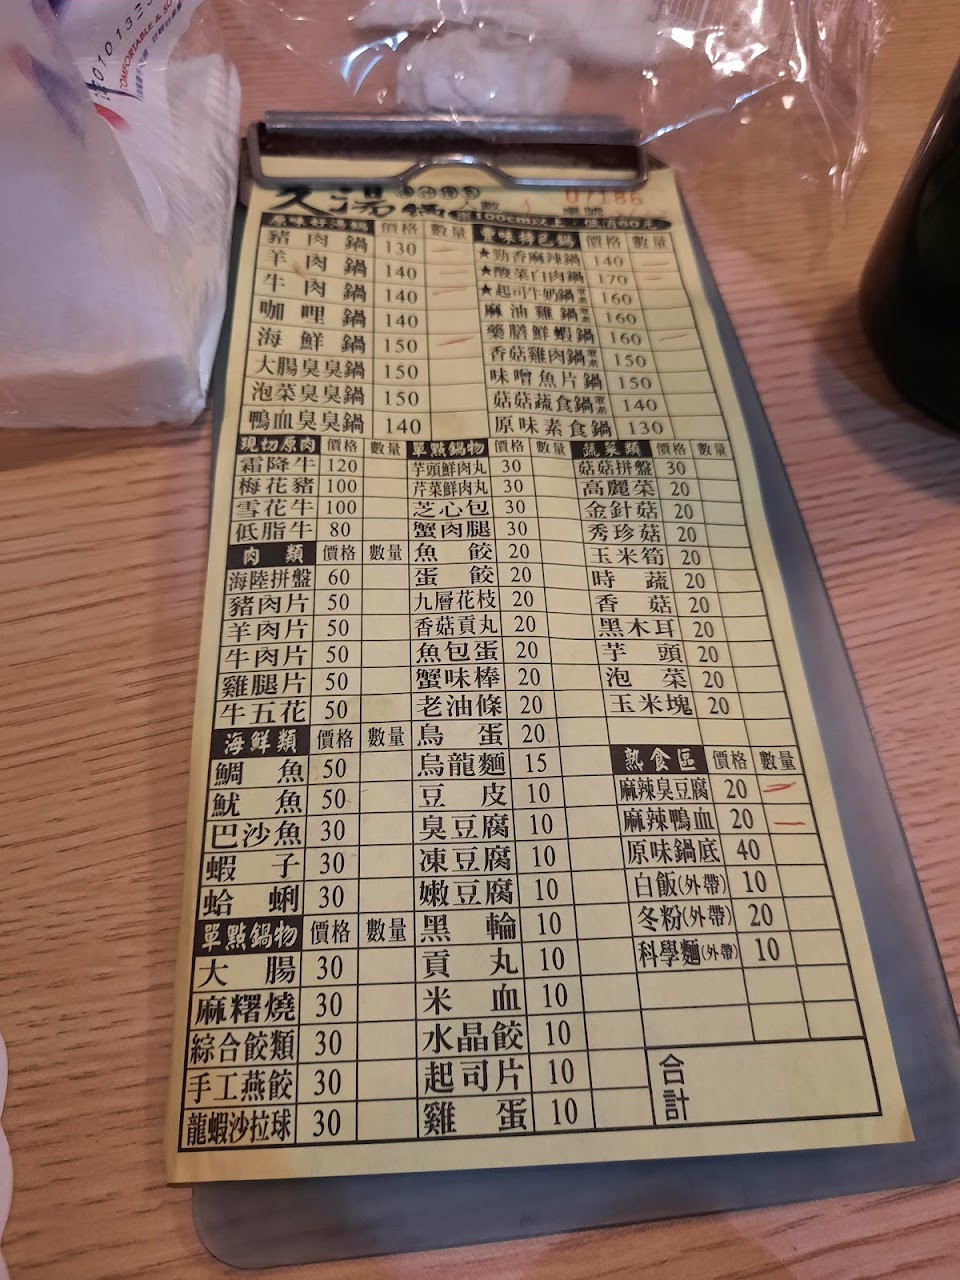 COMFORTABLE & SO
久湯鍋 人數 07186
100cm以上,低消60元
原味好湯鍋 價格 數量
豬肉鍋 130
羊肉鍋 140
牛肉鍋 140
咖哩鍋 140
海鮮鍋 150
大腸臭臭鍋 150
泡菜臭臭鍋 150
鴨血臭臭鍋 140
特色鍋 價格 數量
★勁香麻辣鍋 140
★酸菜白肉鍋 170
★起司牛奶鍋 葷素 160
麻油雞鍋 160
藥膳鮮蝦鍋 160
香菇雞肉鍋 葷素 150
味噌魚片鍋 150
菇菇蔬食鍋 葷素 140
原味素食鍋 130
現切原肉 價格 數量
霜降牛 120
梅花豬 100
雪花牛 100
低脂牛 80
肉類 價格 數量
海陸拼盤 60
豬肉片 50
羊肉片 50
牛肉片 50
雞腿片 50
牛五花 50
海鮮類 價格 數量
鯛魚 50
魷魚 50
巴沙魚 30
蝦子 30
蛤蜊 30
單點鍋物 價格 數量
大腸 30
麻糬燒 30
綜合餃類 30
手工燕餃 30
龍蝦沙拉球 30
單點鍋物 價格 數量
芋頭鮮肉丸 30
芹菜鮮肉丸 30
芝心包 30
蟹肉腿 30
魚餃 20
蛋餃 20
九層花枝 20
香菇貢丸 20
魚包蛋 20
蟹味棒 20
老油條 20
鳥蛋 20
烏龍麵 15
豆皮 10
臭豆腐 10
凍豆腐 10
嫩豆腐 10
黑輪 10
貢丸 10
米血 10
水晶餃 10
起司片 10
雞蛋 10
蔬菜類 價格 數量
菇菇拼盤 30
高麗菜 20
金針菇 20
秀珍菇 20
玉米筍 20
時蔬 20
香菇 20
黑木耳 20
芋頭 20
泡菜 20
玉米塊 20
熟食區 價格 數量
麻辣臭豆腐 20
麻辣鴨血 20
原味鍋底 40
白飯(外帶) 10
冬粉(外帶) 20
科學麵(外帶) 10
合計